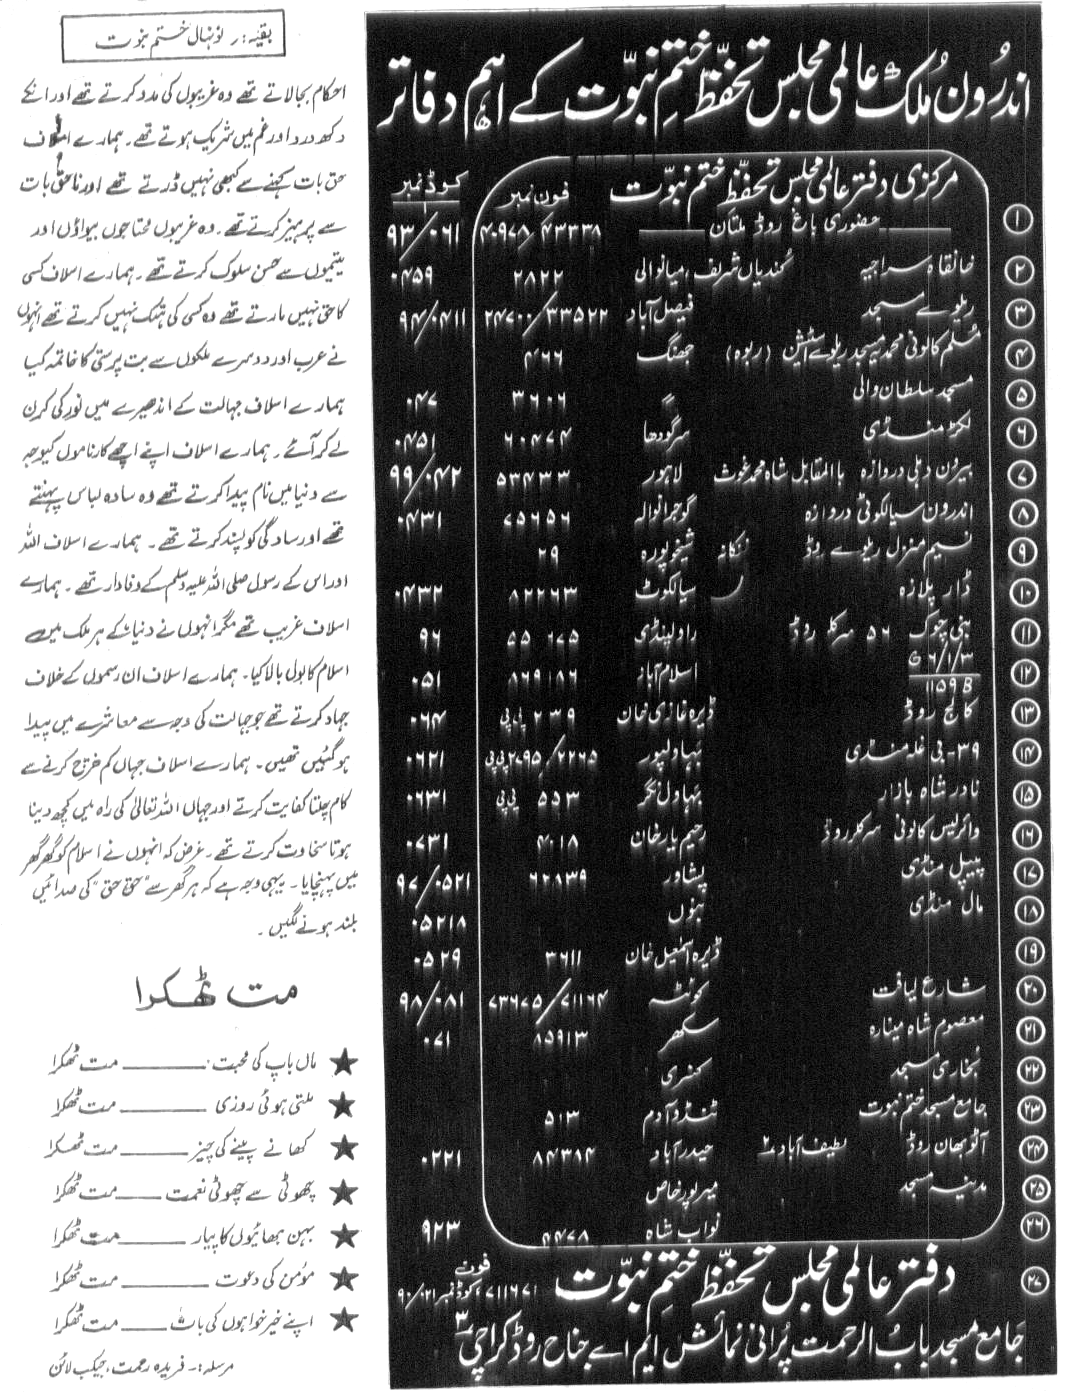 اندرون ملک عالمی مجلس تحفظ ختم نبوت کے اہم دفاتر
مرکزی دفتر عالمی مجلس تحفظ ختم نبوت فون نمبر کوڈ نمبر
۱ حضوری باغ روڈ ملتان ۴۰۹۷۸/۴۳۳۳۸ ۹۳/۰۶۱
۲ خانقاہ سراجیہ کندیاں شریف، میانوالی ۲۸۲۲ ۰۴۵۹
۳ ریلوے مسجد فیصل آباد ۲۴۷۰۰/۳۳۵۲۲ ۹۴/۰۴۱۱
۴ مسلم کالونی محمدیہ مسجد ریلوے اسٹیشن (ربوہ) جھنگ ۴۶۶
۵ مسجد سلطان والی ۳۶۰۶ ۰۴۷
۶ لکڑ منڈی سرگودھا ۶۰۴۷۴ ۰۴۵۱
۷ بیرون دہلی دروازہ بالمقابل شاہ محمد غوث لاہور ۵۳۴۳۳ ۹۹/۰۴۲
۸ اندرون سیالکوٹی دروازہ گوجرانوالہ ۷۵۶۵۶ ۰۴۳۱
۹ نسیم منزل ریلوے روڈ ننکانہ شیخوپورہ ۲۹
۱۰ ڈار پلازہ سیالکوٹ ۸۲۲۶۳ ۰۴۳۲
۱۱ بنی چوک ۵۶ سرکلر روڈ راولپنڈی ۵۵۶۷۵ ۹۶
۱۲ G ۶/۱/۳ 1159 B اسلام آباد ۸۶۹۱۸۶ ۰۵۱
۱۳ کالج روڈ ڈیرہ غازی خان ۲۳۹ پی پی ۰۶۴
۱۴ ۳۹-بی غلہ منڈی بہاولپور ۲۷۹۵/۲۲۶۵ پی پی ۰۶۲۱
۱۵ نادر شاہ بازار بہاول نگر ۵۵۳ پی پی ۰۶۳۱
۱۶ وائرلیس کالونی سرکلر روڈ رحیم یار خان ۴۰۱۸ ۰۷۳۱
۱۷ پیپل منڈی پشاور ۶۲۸۳۹ ۹۷/۰۵۲۱
۱۸ مال منڈی بنوں ۰۵۲۱۸
۱۹ ڈیرہ اسمٰعیل خان ۳۶۱۱ ۰۵۲۹
۲۰ شارع لیاقت کوئٹہ ۷۳۶۷۵/۷۱۱۶۴ ۹۸/۰۸۱
۲۱ معصوم شاہ مینارہ سکھر ۸۵۹۱۳ ۰۷۱
۲۲ بخاری مسجد کنری
۲۳ جامع مسجد ختم نبوت ٹنڈو آدم ۵۱۳
۲۴ آٹوبھان روڈ لطیف آباد حیدرآباد ۸۴۳۱۴ ۰۲۲۱
۲۵ مدینہ مسجد میرپور خاص
۲۶ نواب شاہ ۴۴۷۸ ۹۲۳
۲۷ دفتر عالمی مجلس تحفظ ختم نبوت فون ۷۱۱۶۷۱، کوڈ نمبر ۹۰/۰۲۱
جامع مسجد باب الرحمت پرانی نمائش ایم اے جناح روڈ کراچی ۳
بقیہ: نونہال ختم نبوت
احکام بجا لاتے تھے وہ غریبوں کی مدد کرتے تھے اور انکے
دکھ درد اور غم میں شریک ہوتے تھے۔ ہمارے اسلاف
حق بات کہنے سے کبھی نہیں ڈرتے تھے اور ناحق بات
سے پرہیز کرتے تھے۔ وہ غریبوں محتاجوں بیواؤں اور
یتیموں سے حسن سلوک کرتے تھے۔ ہمارے اسلاف کسی
کا حق نہیں مارتے تھے وہ کسی کی ہتک نہیں کرتے تھے انہوں
نے عرب اور دوسرے ملکوں سے بت پرستی کا خاتمہ کیا
ہمارے اسلاف جہالت کے اندھیرے میں نور کی کرن
لے کر آئے۔ ہمارے اسلاف اپنے اچھے کارناموں کیوجہ
سے دنیا میں نام پیدا کرتے تھے وہ سادہ لباس پہنتے
تھے اور سادگی کو پسند کرتے تھے۔ ہمارے اسلاف اللہ
اور اس کے رسول صلی اللہ علیہ وسلم کے وفادار تھے۔ ہمارے
اسلاف غریب تھے مگر انہوں نے دنیا کے ہر ملک میں
اسلام کا بول بالا کیا۔ ہمارے اسلاف ان رسموں کے خلاف
جہاد کرتے تھے جو جہالت کی وجہ سے معاشرے میں پیدا
ہو گئیں تھیں۔ ہمارے اسلاف جہاں کم خرچ کرنے سے
کام چلتا کفایت کرتے اور جہاں اللہ تعالیٰ کی راہ میں کچھ دینا
ہوتا سخاوت کرتے تھے۔ غرض کہ انہوں نے اسلام کو گھر گھر
میں پہنچایا۔ یہی وجہ ہے کہ ہر گھر سے "حق حق" کی صدائیں
بلند ہونے لگیں۔
مت ٹھکرا
★ ماں باپ کی محبت: ــــــ مت ٹھکرا
★ ملتی ہوئی روزی ــــــ مت ٹھکرا
★ کھانے پینے کی چیز ــــــ مت ٹھکرا
★ چھوٹی سے چھوٹی نعمت ــــــ مت ٹھکرا
★ بہن بھائیوں کا پیار ــــــ مت ٹھکرا
★ مؤمن کی دعوت ــــــ مت ٹھکرا
★ اپنے خیر خواہوں کی بات ــــــ مت ٹھکرا
مرسلہ:۔ فریدہ رحمت، جیکب لائن